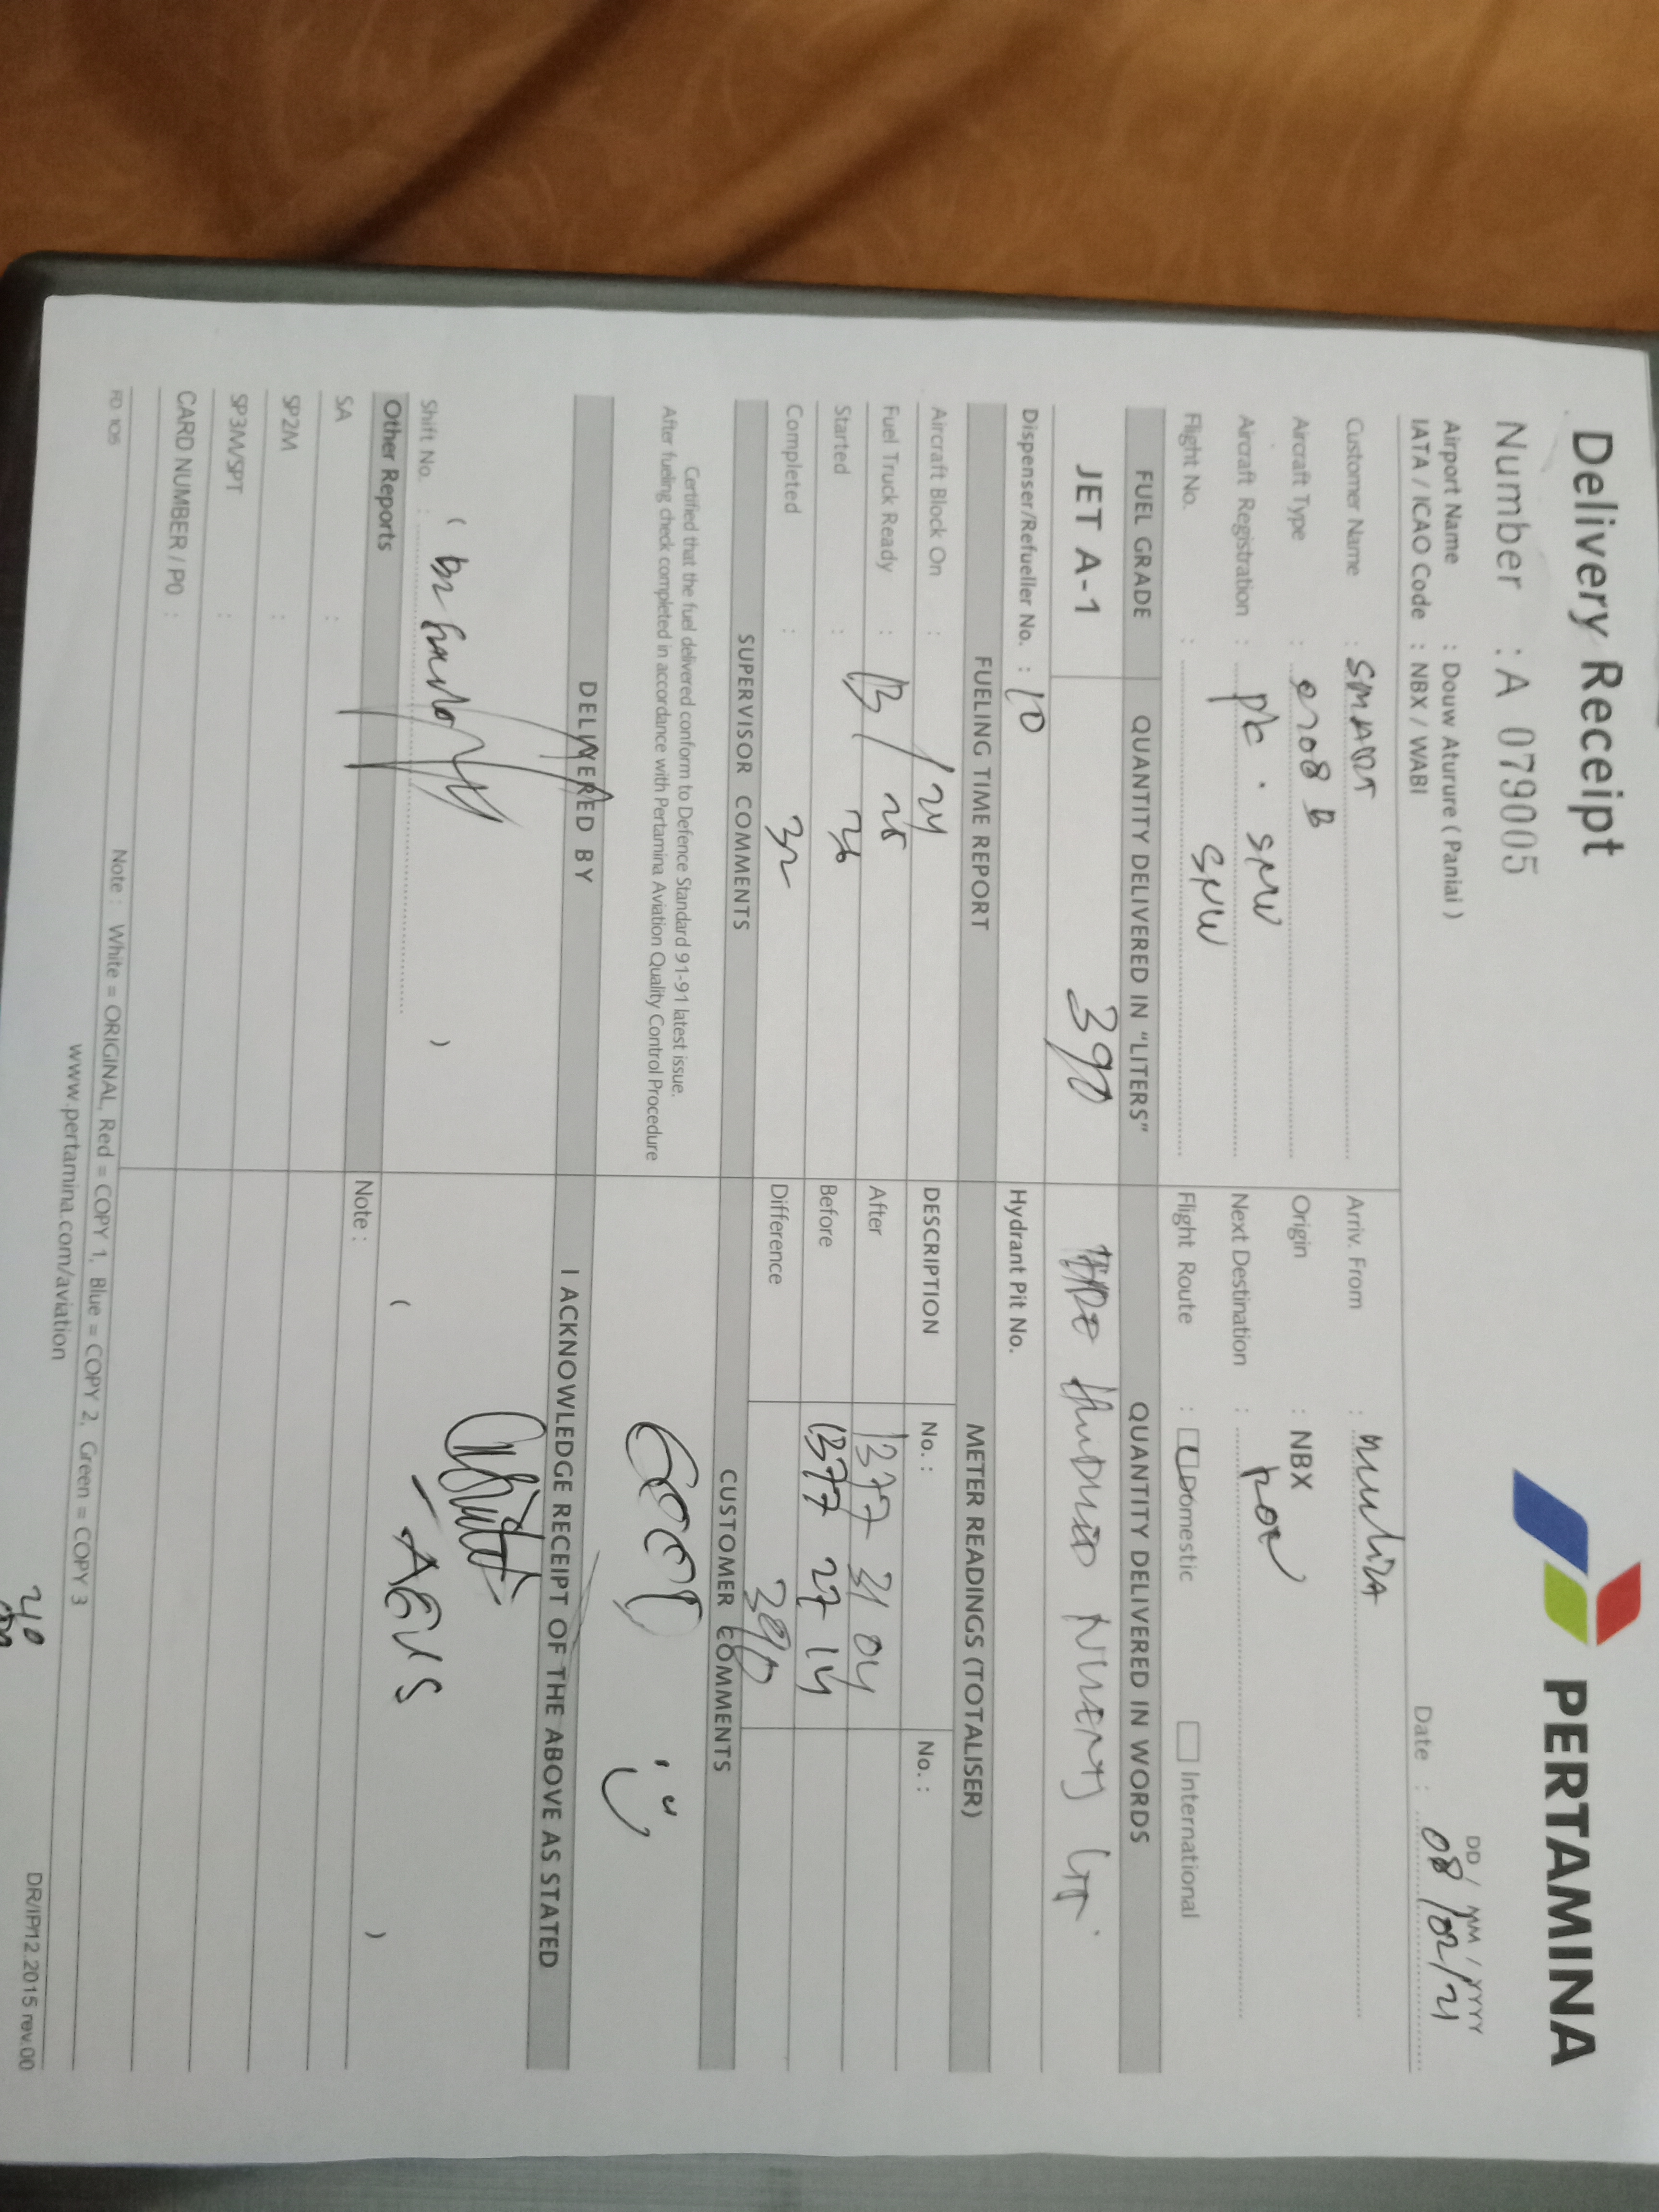 Delivery Receipt
PERTAMINA
Number : A 079005
DD / MM / YYYY
Airport Name : Douw Aturure ( Paniai )
Date : 08/02/21
IATA / ICAO Code : NBX / WABI
Customer Name : SMART
Arriv. From : mulia
Aircraft Type : c208 B
Origin : NBX
Aircraft Registration : pk . SNW
Next Destination :
Flight No. : SNW
Flight Route : Domestic International
FUEL GRADE QUANTITY DELIVERED IN "LITERS" QUANTITY DELIVERED IN WORDS
JET A-1 390 HUNDRED NINETY LTR.
Dispenser/Refueller No. : 10 Hydrant Pit No.
FUELING TIME REPORT METER READINGS (TOTALISER)
Aircraft Block On : 13/24 DESCRIPTION No. : No. :
Fuel Truck Ready : 25 After 1377 31 04
Started : 26 Before 1377 27 14
Completed : 32 Difference 390
SUPERVISOR COMMENTS CUSTOMER COMMENTS
Certified that the fuel delivered conform to Defence Standard 91-91 latest issue.
After fueling check completed in accordance with Pertamina Aviation Quality Control Procedure
GOOD
DELIVERED BY I ACKNOWLEDGE RECEIPT OF THE ABOVE AS STATED
( ) ( AGUS )
Shift No. :
Other Reports Note :
SA :
SP2M :
SP3M/SPT :
CARD NUMBER / PO :
FD 106
Note : White = ORIGINAL, Red = COPY 1, Blue = COPY 2, Green = COPY 3
www.pertamina.com/aviation
DR/IP/12.2015 rev.00